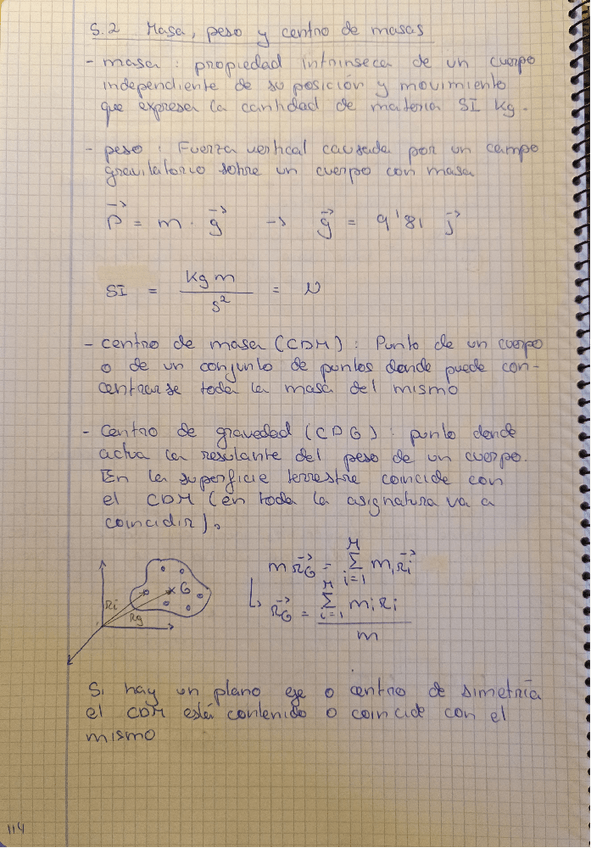 5.2 Masa, peso y centro de masas
- masa : propiedad intrinseca de un cuerpo
independiente de su posición y movimiento
que expresa la cantidad de materia SI Kg.
- peso : Fuerza vertical causada por un campo
gravitatorio sobre un cuerpo con masa
P⃗ = m · g⃗ -> g⃗ = 9'81 j⃗
SI = Kg m / s² = N
- centro de masa (CDM) : Punto de un cuerpo
o de un conjunto de puntos donde puede con-
centrarse toda la masa del mismo
- Centro de gravedad (CDG) : punto donde
actua la resulante del peso de un cuerpo.
En la superficie terrestre coincide con
el CDM (en toda la asignatura va a
coincidir).
m r⃗G = M Σ i=1 mi r⃗i
Ri rg G
r⃗G = M Σ i=1 mi ri / m
Si hay un plano eje o centro de simetría
el CDM está contenido o coincide con el
mismo
114